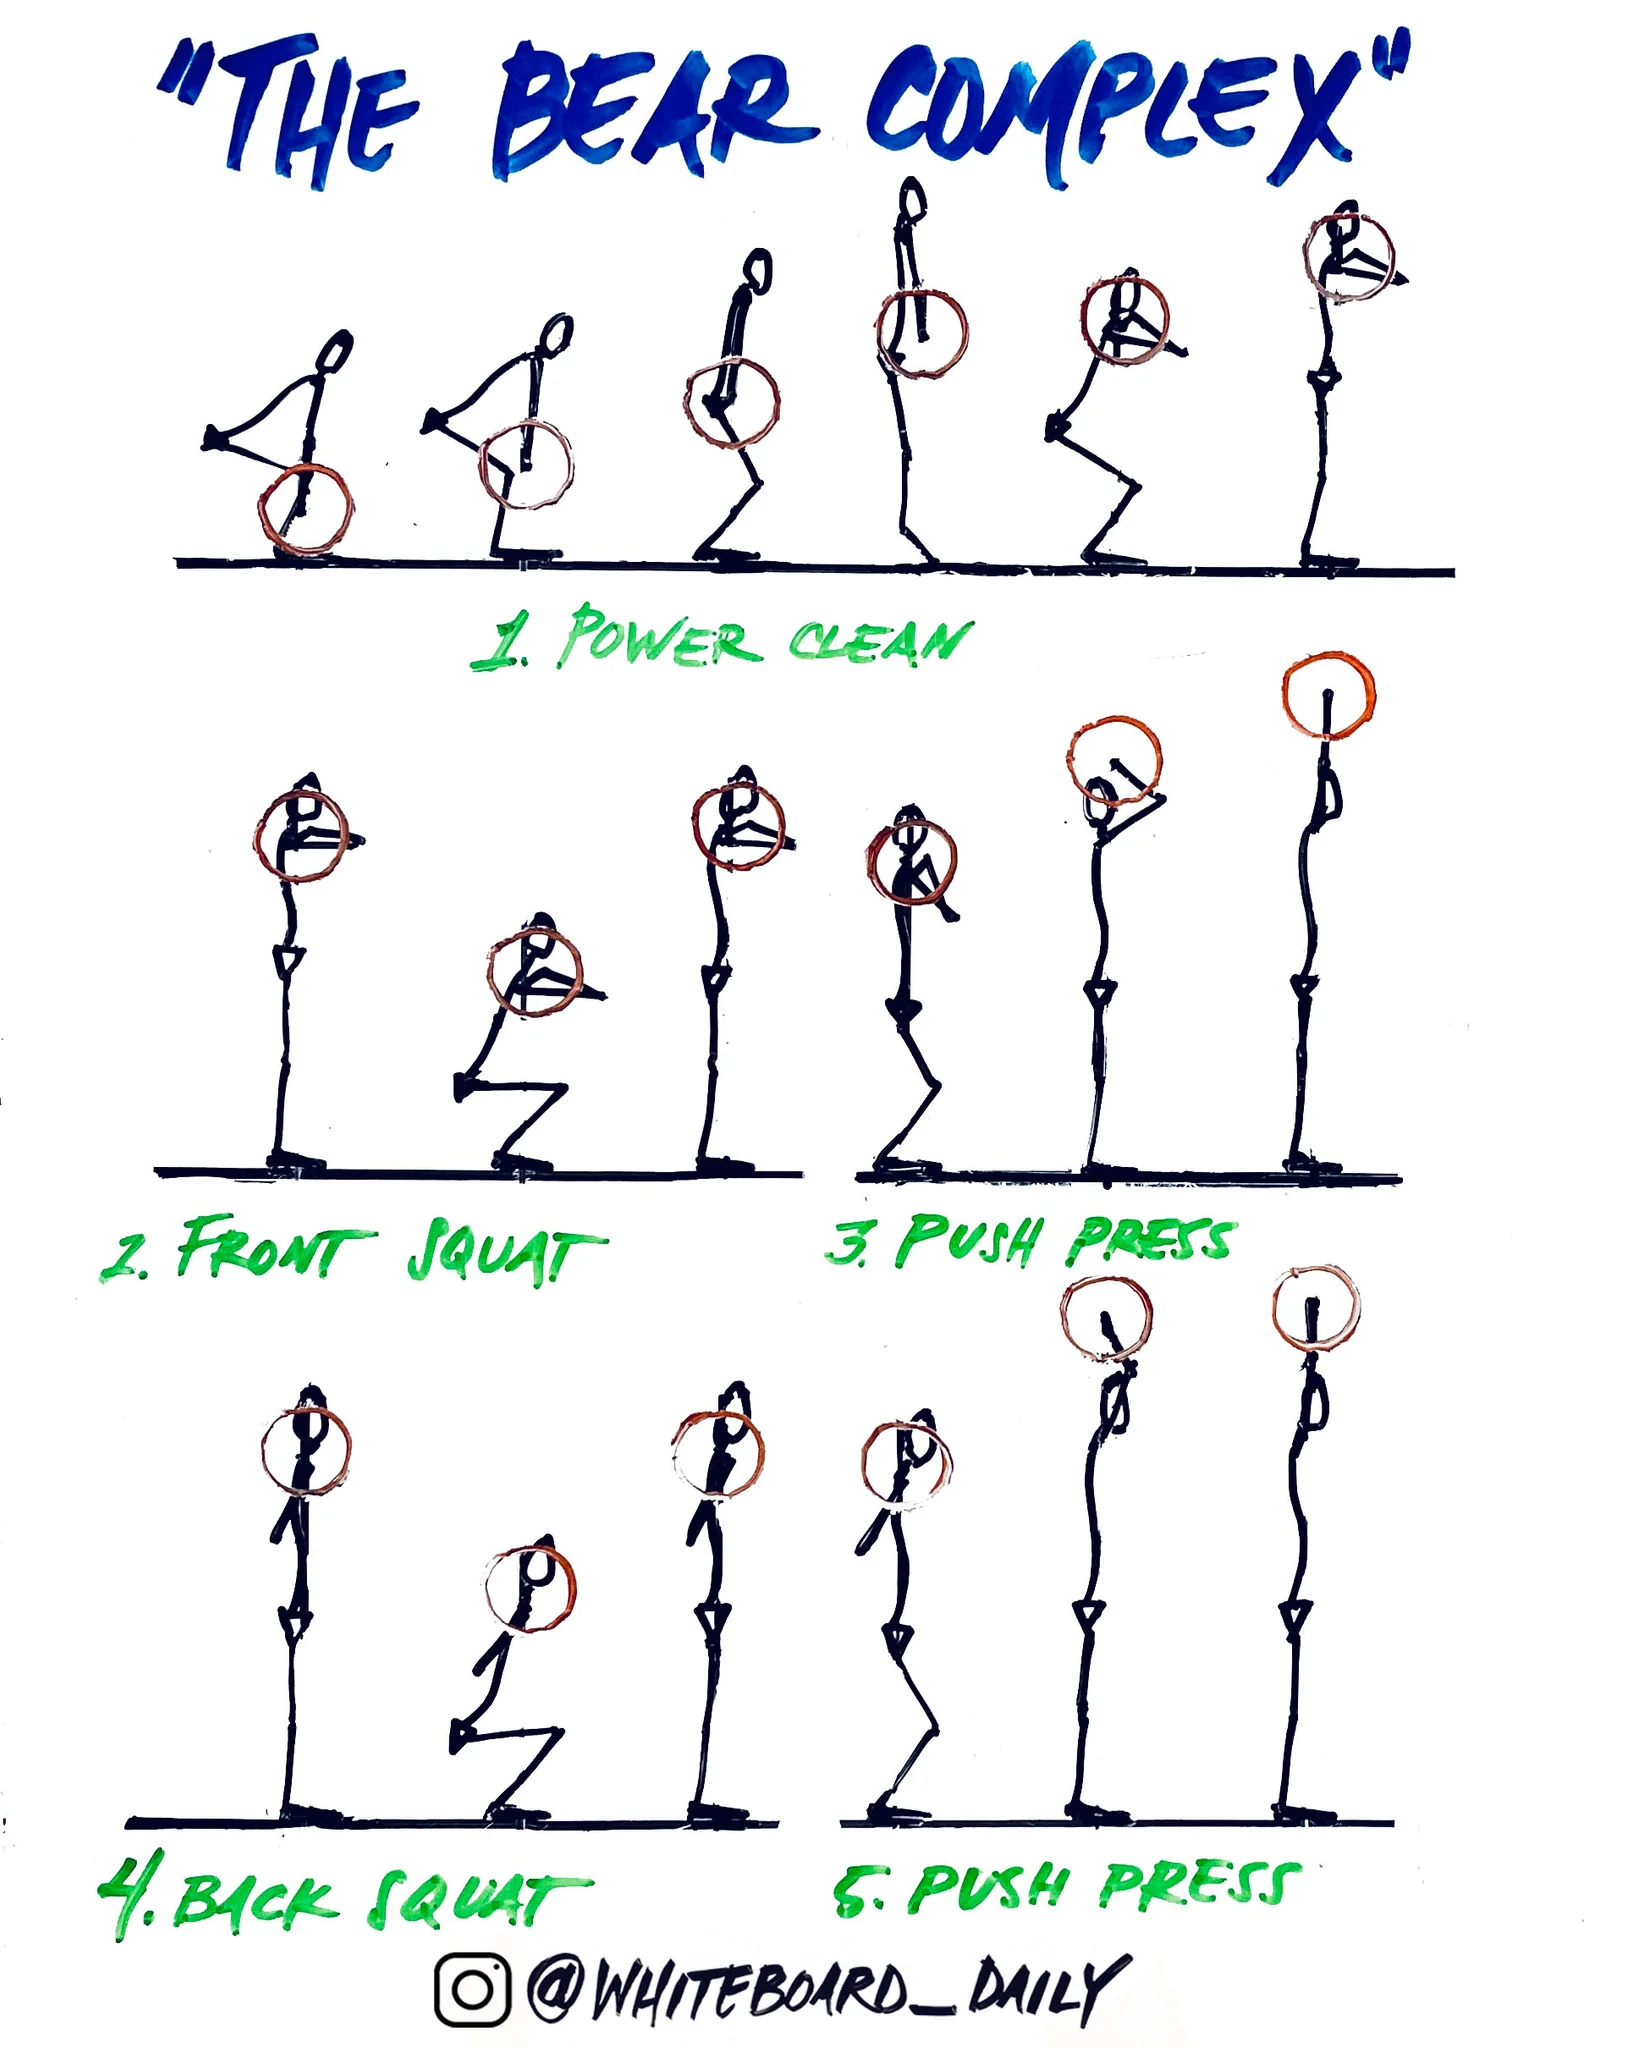 "THE BEAR COMPLEX"
1. POWER CLEAN
2. FRONT SQUAT
3. PUSH PRESS
4. BACK SQUAT
5. PUSH PRESS
@WHITEBOARD_DAILY